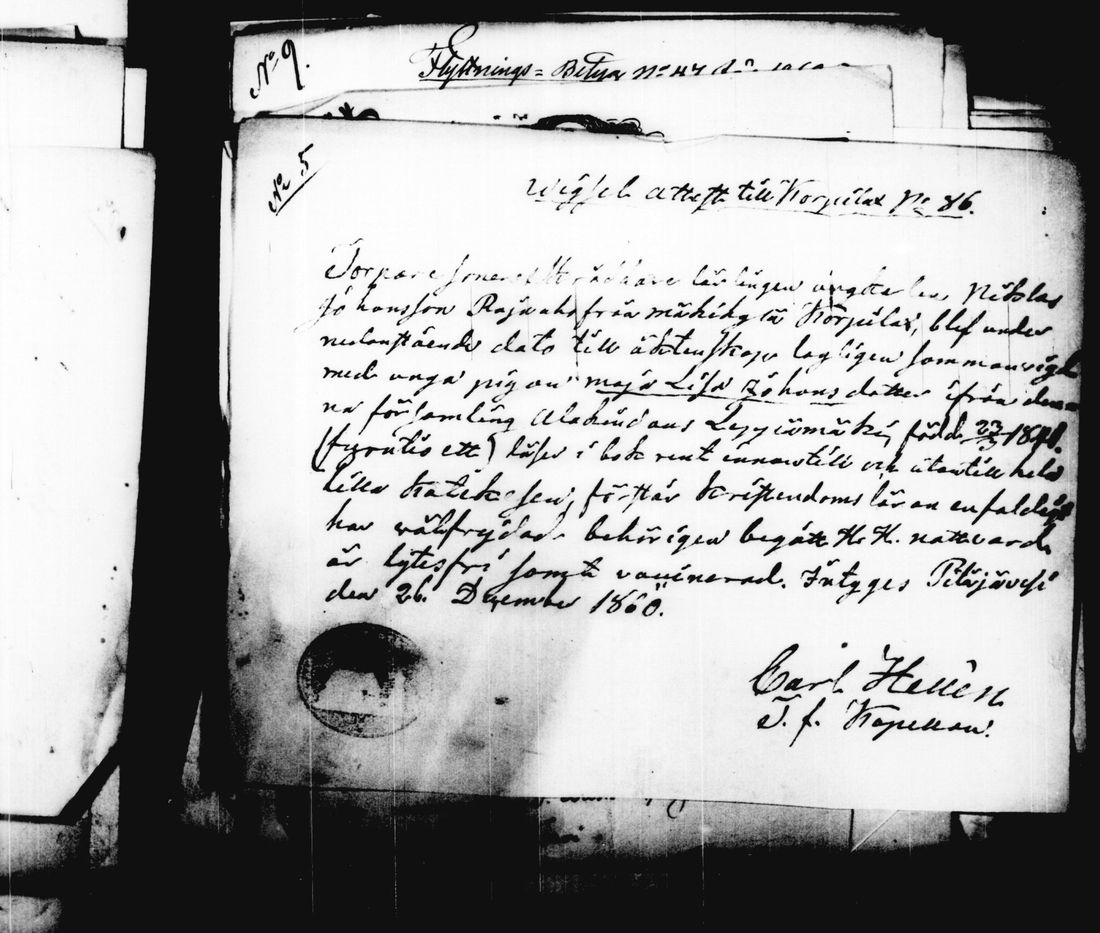 No 9.
Flyttnings=Betyg No 47
No 5
Wigsel attest till Korpilax No 86.
Torpare sonen Skräddare lärlingen ungkarlen Niklas
Johansson från mäki by i Korpilax, blef under
nedanstående dato till äktenskap lagligen sammanvigd
med unga pigan Maja Lisa Johans dotter ifrån den=
na församling Alakind aus Leppämäki, född 23/3 1841.
(fyratio ett) läser i bok rent innantill och utantill hela
lilla Katekesen, förstår Kristendoms läran enfaldigt
har wälfrejdad behörigen begått H. H. nattvard
är lytesfri samt vaccinerad. Intygges Petäjävesi
den 26. December 1860.
Carl Hellén
t. f. Kapellan.